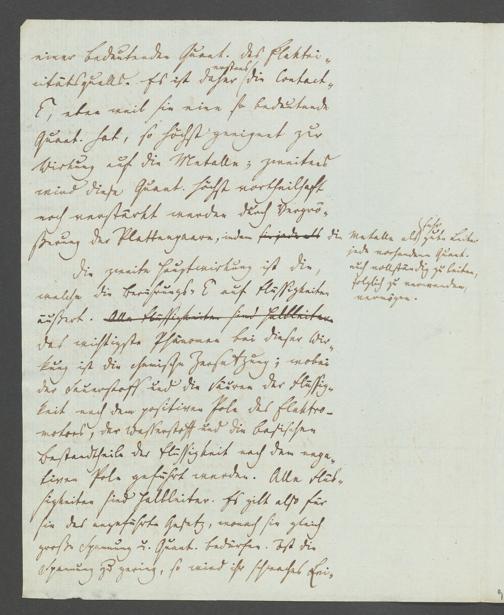 einer bedeutenden Quant. des Elektri-
citätsquells. Es ist daher erstens die Contact-
E, eben weil sie eine so bedeutende
Quant. hat, so höchst geeignet zur
Wirkung auf die Metalle; zweitens
wird diese Quant. höchst vortheilhaft
noch verstärkt werden durch Vergrö-
ßerung der Plattenpaare, indem die
Metalle als sehr gute Leiter
jede vorhandene Quant.
auch vollständig zu leiten,
folglich zu verwenden,
vermögen.
Die zweite Hauptwirkung ist die,
welche die Berührungs-E auf Flüssigkeiten
äußert. Alle Flüssigkeiten sind Halbleiter.
Das wichtigste Phänomen bei dieser Wir-
kung ist die chemische Zersetzung; wobei
der Sauerstoff und die Säuren der Flüssig-
keit nach dem positiven Pole des Elektro-
motors, der Wasserstoff und die basischen
Bestandtheile der Flüssigkeit nach dem nega-
tiven Pole geführt werden. Alle Flüs-
sigkeiten sind Halbleiter. Es gilt also für
sie das angeführte Gesetz, wonach sie gleich
große Spannung u. Quant. bedürfen. Ist die
Spannung zu gering, so wird ihr schwaches